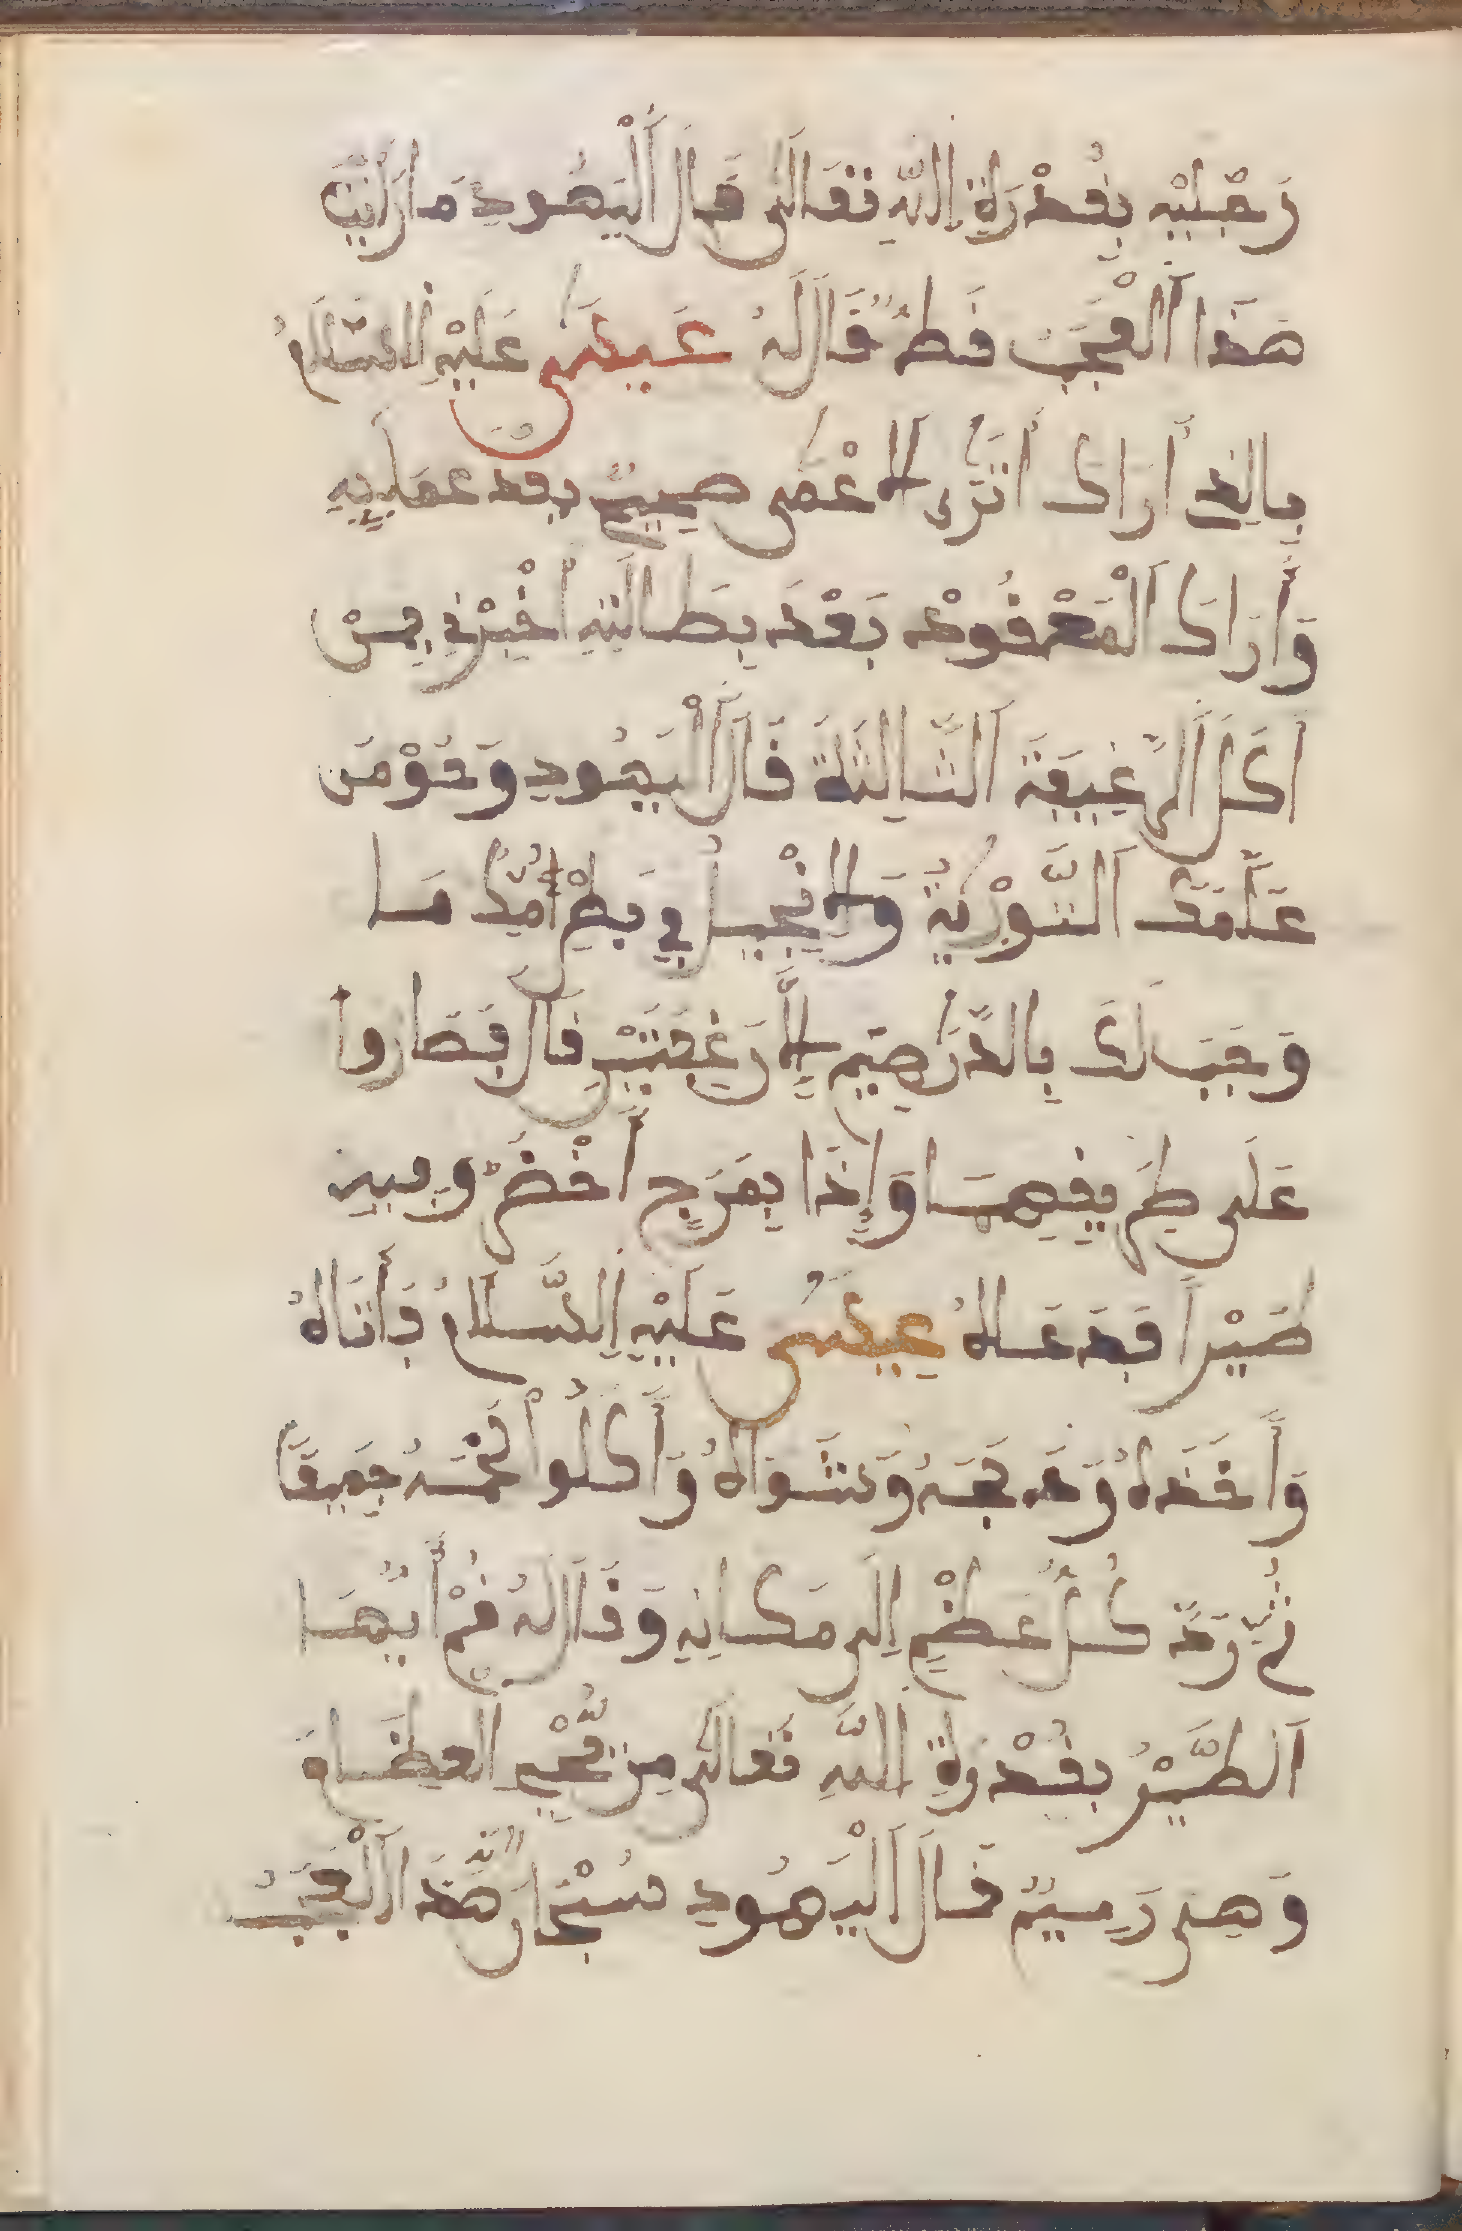 رَجْلَيْهِ بِقُدْرَةِ اللَّهِ تَعَالَى قَالَ الْيَهُودِ مَا رَأَيْتُ
هَذَا الْعَجَبُ قَطُّ قَالَ لَهُ عِيسَى عَلَيْهِ السَّلَامُ
بِالَّذِي أَرَاكَ أَنْتَ الْأَعْمَى صَحِيحٌ بَعْدَ عَمَايِهِ
وَأَرَاكَ الْمَعْقُودْ بَعْدَ بَطَالَتِهِ أَخْبِرْنِي مَنْ
أَكَلَ الرَّغِيفَةَ الثَّالِثَةَ قَالَ الْيَهُودِ وَحَقِّ مَنْ
عَلَّمَكَ التَّوْرِيَةَ وَالْإِنْجِيلَ فِي بَطْنِ أُمِّكَ مَا
وَجَبَ لَكَ بِالدَّرَاهِمِ إِلَّا رَغِيفَتَيْنِ قَالَ فَصَارُوا
عَلَى طَرِيقِهِمَا وَإِذَا بِمَرْجٍ أَخْضَرٍ وَبِهِ
طَيْرًا فَدَعَاهُ عِيسَى عَلَيْهِ السَّلَامُ فَأَتَاهُ
وَأَخَذَهُ وَذَبَحَهُ وَشَوَاهُ وَأَكَلُوا لَحْمَهُ جَمِيعًا
ثُمَّ رَدَّ كُلَّ عَظْمٍ إِلَى مَكَانِهِ وَقَالَ لَهُ قُمْ أَيُّهَا
الطَّيْرُ بِقُدْرَةِ اللَّهِ تَعَالَى مَنْ يُحْيِي الْعِظَامَ
وَهِيَ رَمِيمٌ قَالَ الْيَهُودِ سُبْحَانَ هَذَا الْعَجَبُ